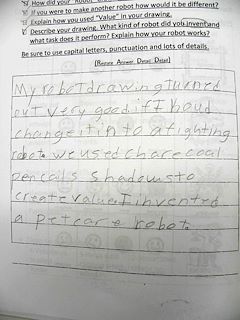 How did your "Robot"
If you were to make another robot how would it be different?
Explain how you used "Value" in your drawing.
Describe your drawing. What kind of robot did you invent and
what task does it perform? Explain how your robot works?
Be sure to use capital letters, punctuation and lots of details.
[Restate Answer Detail Detail]
My robot drawing turned
out very good if I houd
change it in to a fighting
robot. We used chare coal
pencails shadows to
create value. I invented
a pet care robot.